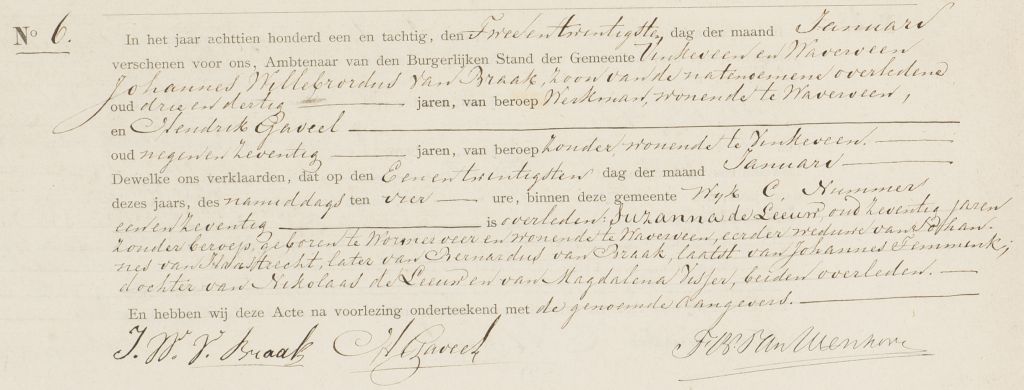 No 6.
In het jaar achttien honderd een en tachtig, den Tweeentwintigsten dag der maand Januari
verschenen voor ons, Ambtenaar van den Burgerlijken Stand der Gemeente Vinkeveen en Waverveen
Johannes Willebrordus van Braak, zoon van de natenoemene overledene
oud drie en dertig jaren, van beroep Werkman, wonende te Waverveen,
en Hendrik Gaveel
oud negen en zeventig jaren, van beroep zonder, wonende te Vinkeveen.
Dewelke ons verklaarden, dat op den Eenentwintigsten dag der maand Januari
dezes jaars, des namiddags ten vier ure, binnen deze gemeente Wyk C, Nummer
een en zeventig is overleden: Suzanna de Leeuw, oud zeventig jaren
zonder beroep, geboren te Wormerveer en wonende te Waverveen, eerder weduwe van Johan-
nes van Haastrecht, later van Bernardus van Braak, laatst van Johannes Temmink;
dochter van Nikolaas de Leeuw en van Magdalena Visser, beiden overleden.
En hebben wij deze Acte na voorlezing onderteekend met de genoemde aangevers.
J. W. V. Braak H Gaveel